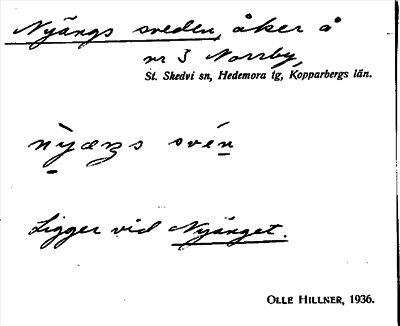 Nyängs sveden, åker å
nr 3 Norrby,
St. Skedvi sn, Hedemora tg, Kopparbergs län.
nỳæŋs svén
Ligger vid Nyänget.
OLLE HILLNER, 1936.